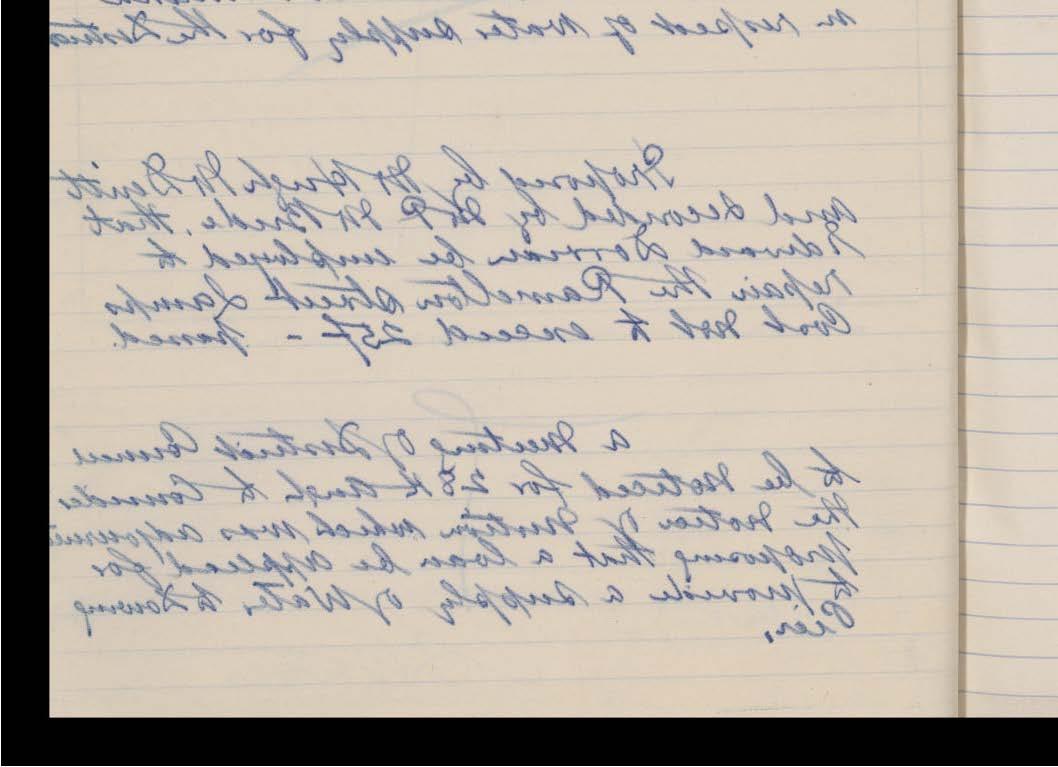 in respect of Water Supply for the District
Proposed by Mr Hugh McDevitt
and seconded by Mr P McBride, that
Edward Dorrian be employed to
repair the Ramelton Street Lamps
Cost not to exceed 25/- - passed.
A Meeting of District Council
to be Noticed for 28th to Consider
the Notice of Motion which was adjourned
proposing that a loan be applied for
to provide a supply of Water to Downg
Pier.